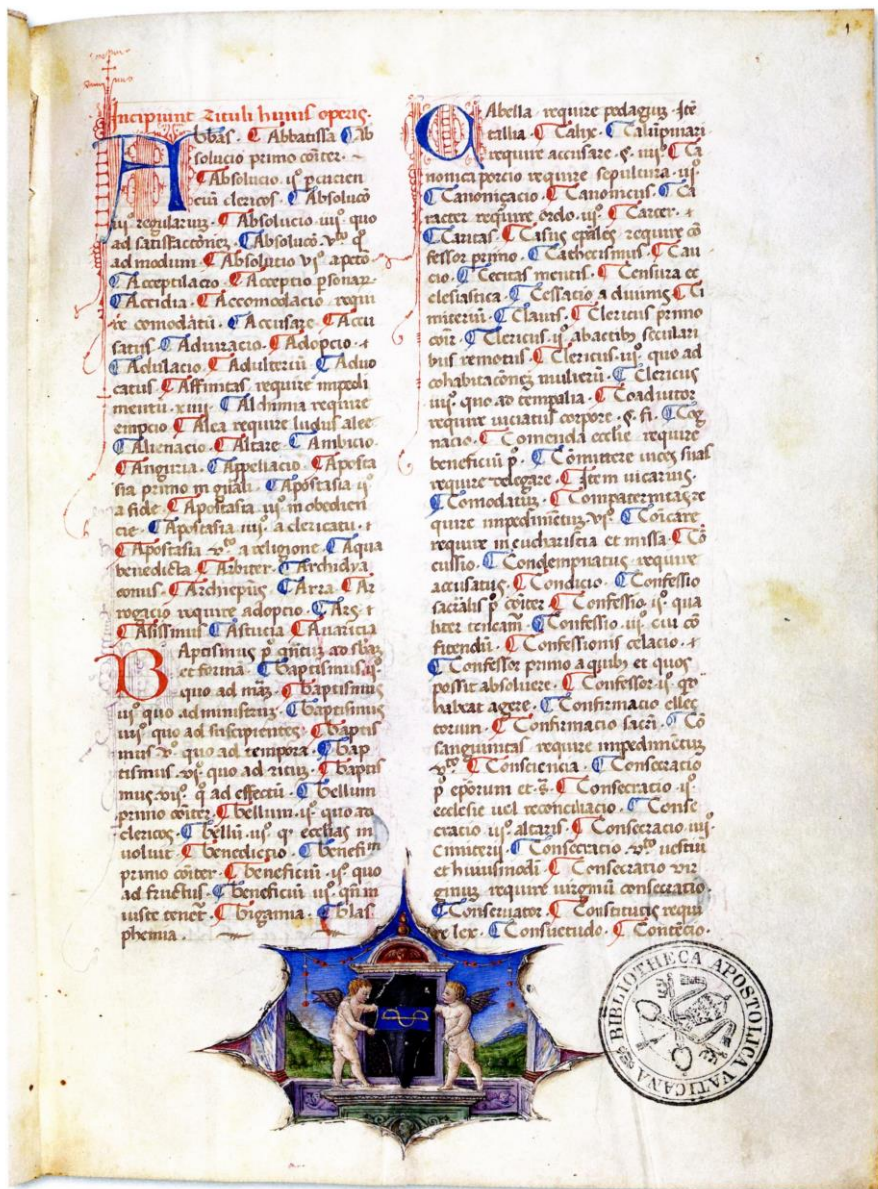 1
Incipiunt Tituli huius operis.
Abbas. Abbatissa Ab
solucio primo cōiter.
Absolucio. ijº. percucien
ciū clericos. Absolucō
iijº regulariuꝫ. Absolucio. iiijº. quo
ad satisfactōneꝫ. Absolucō. vº. q
ad modum. Absolutio vjº a petō
Acceptilacio. Acceptio psonaꝝ.
Accidia. Accomodacio requi
re comodatū. Accusare. Accu
satus. Adiuracio. Adopcio. ⁊
Adulacio. Adulteriū. Aduo
catus. Affinitas require impedi
mentū. xiiij. Alchimia require
empcio. Alea require ludus alee
Alienacio. Altare. Ambicio.
Anguria. Appellacio. Aposta
sia primo in gn̄ali. Apostasia ijº
a fide. Apostasia iijº. in obedien
cie. Apostasia iiijº. a clericatu. ⁊
Apostasia vº. a religione. Aqua
benedicta. Arbiter. Archidya
conus. Archiepūs. Arra. Ar
rogacio require adoptio. Ars. ⁊
Assissinus. Astucia. Auaricia
Baptismus pº
et forma. Baptismus. ijº.
quo ad māꝫ. baptismus
iijº quo ad ministruꝫ. baptismus
iiijº quo ad suscipientes. baptis
mus vº quo ad tempora. bap
tismus. vjº. quo ad rituꝫ. baptis
mus. vijº. q ad effectū. bellum
primo cōiter. bellum. ijº. quo ad
clericos. bellū. iijº. qꝛ ecclias in
uoluit. benedictio. benefiᵐ
primo cōiter. beneficiū. ijº. quo
ad fructus. beneficiū iijº. qn̄ in
iuste tenet. bigamia. blas
phemia.
Cabella require pedagiuꝫ. Itē
tallia. Calix. Calūpniari
require accusare. §. iiijº. Ca
nonica porcio require sepultura. iijº.
Canonizacio. Canonicus. Ca
racter require ordo. ijº. Carcer. ⁊
Caritas. Casus epāles require cō
fessor primo. Cathecismus. Cau
cio. Cecitas mentis. Censura ec
clesiastica. Cessatio a diuinis. Ci
miteriū. Clauis. Clericus primo
cōit. Clericus. ijº. ab actibꝫ seculari
bus remotus. Clericus. iijº. quo ad
cohabitacōneꝫ mulierū. Clericus
iiijº. quo ad tempalia. Coadiutor
require uiciatus corpore. §. fi. Cog
nacio. Comenda ecclie require
beneficiū pº. Cōmittere uices suas
require delegare. Item uicarius.
Comodatuꝫ. Compaternitas re
quire impedimētuꝫ. vjº. Cōicare
require in eucharistia et missa. Cō
cussio. Condempnatus require
accusatus. Condicio. Confessio
sacralis pº cōiter. Confessio. ijº. qua
liter. Confessio. iijº. cui cō
fitendū. Confessionis celacio. ⁊
Confessor primo a quibꝫ et quos
possit absoluere. Confessor. ijº. qd
habeat agere. Confirmacio ellec
torum. Confirmacio sacrī. Cō
sanguinitas require impedimētuꝫ
vº. Consciencia. Consecratio
pº eporum et
Consecratio. ijº.
ecclesie uel reconciliacio. Conse
cratio iijº. altaris. Consecracio iiijº.
Cimiterii. Consecratio vº. uestiū
et huiusmodi. Consecratio vir
ginuꝫ require uirginū consecratio.
Conseruator. Constitucio requi
re lex. Consuetudo. Contēcio.
BIBLIOTHECA APOSTOLICA VATICANA